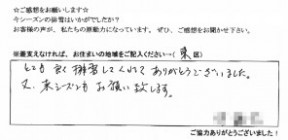 ☆ご感想をお願いします☆
今シーズンの排雪はいかがでしたか？
お客様の声が、私たちの原動力になっています。ぜひ、ご感想をお聞かせ下さい。
※差支えなければ、お住まいの地域をご記入ください→（東区）
とても良く排雪してくれてありがとうございました。
又、来シーズンもお願い致します。
ご協力ありがとうございました！